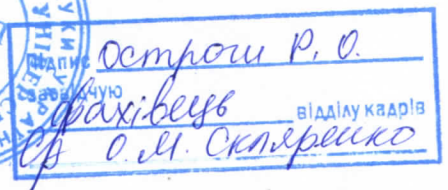 Підпис Остроги Р. О.
засвідчую
фахівець відділу кадрів
О.М. Скляренко